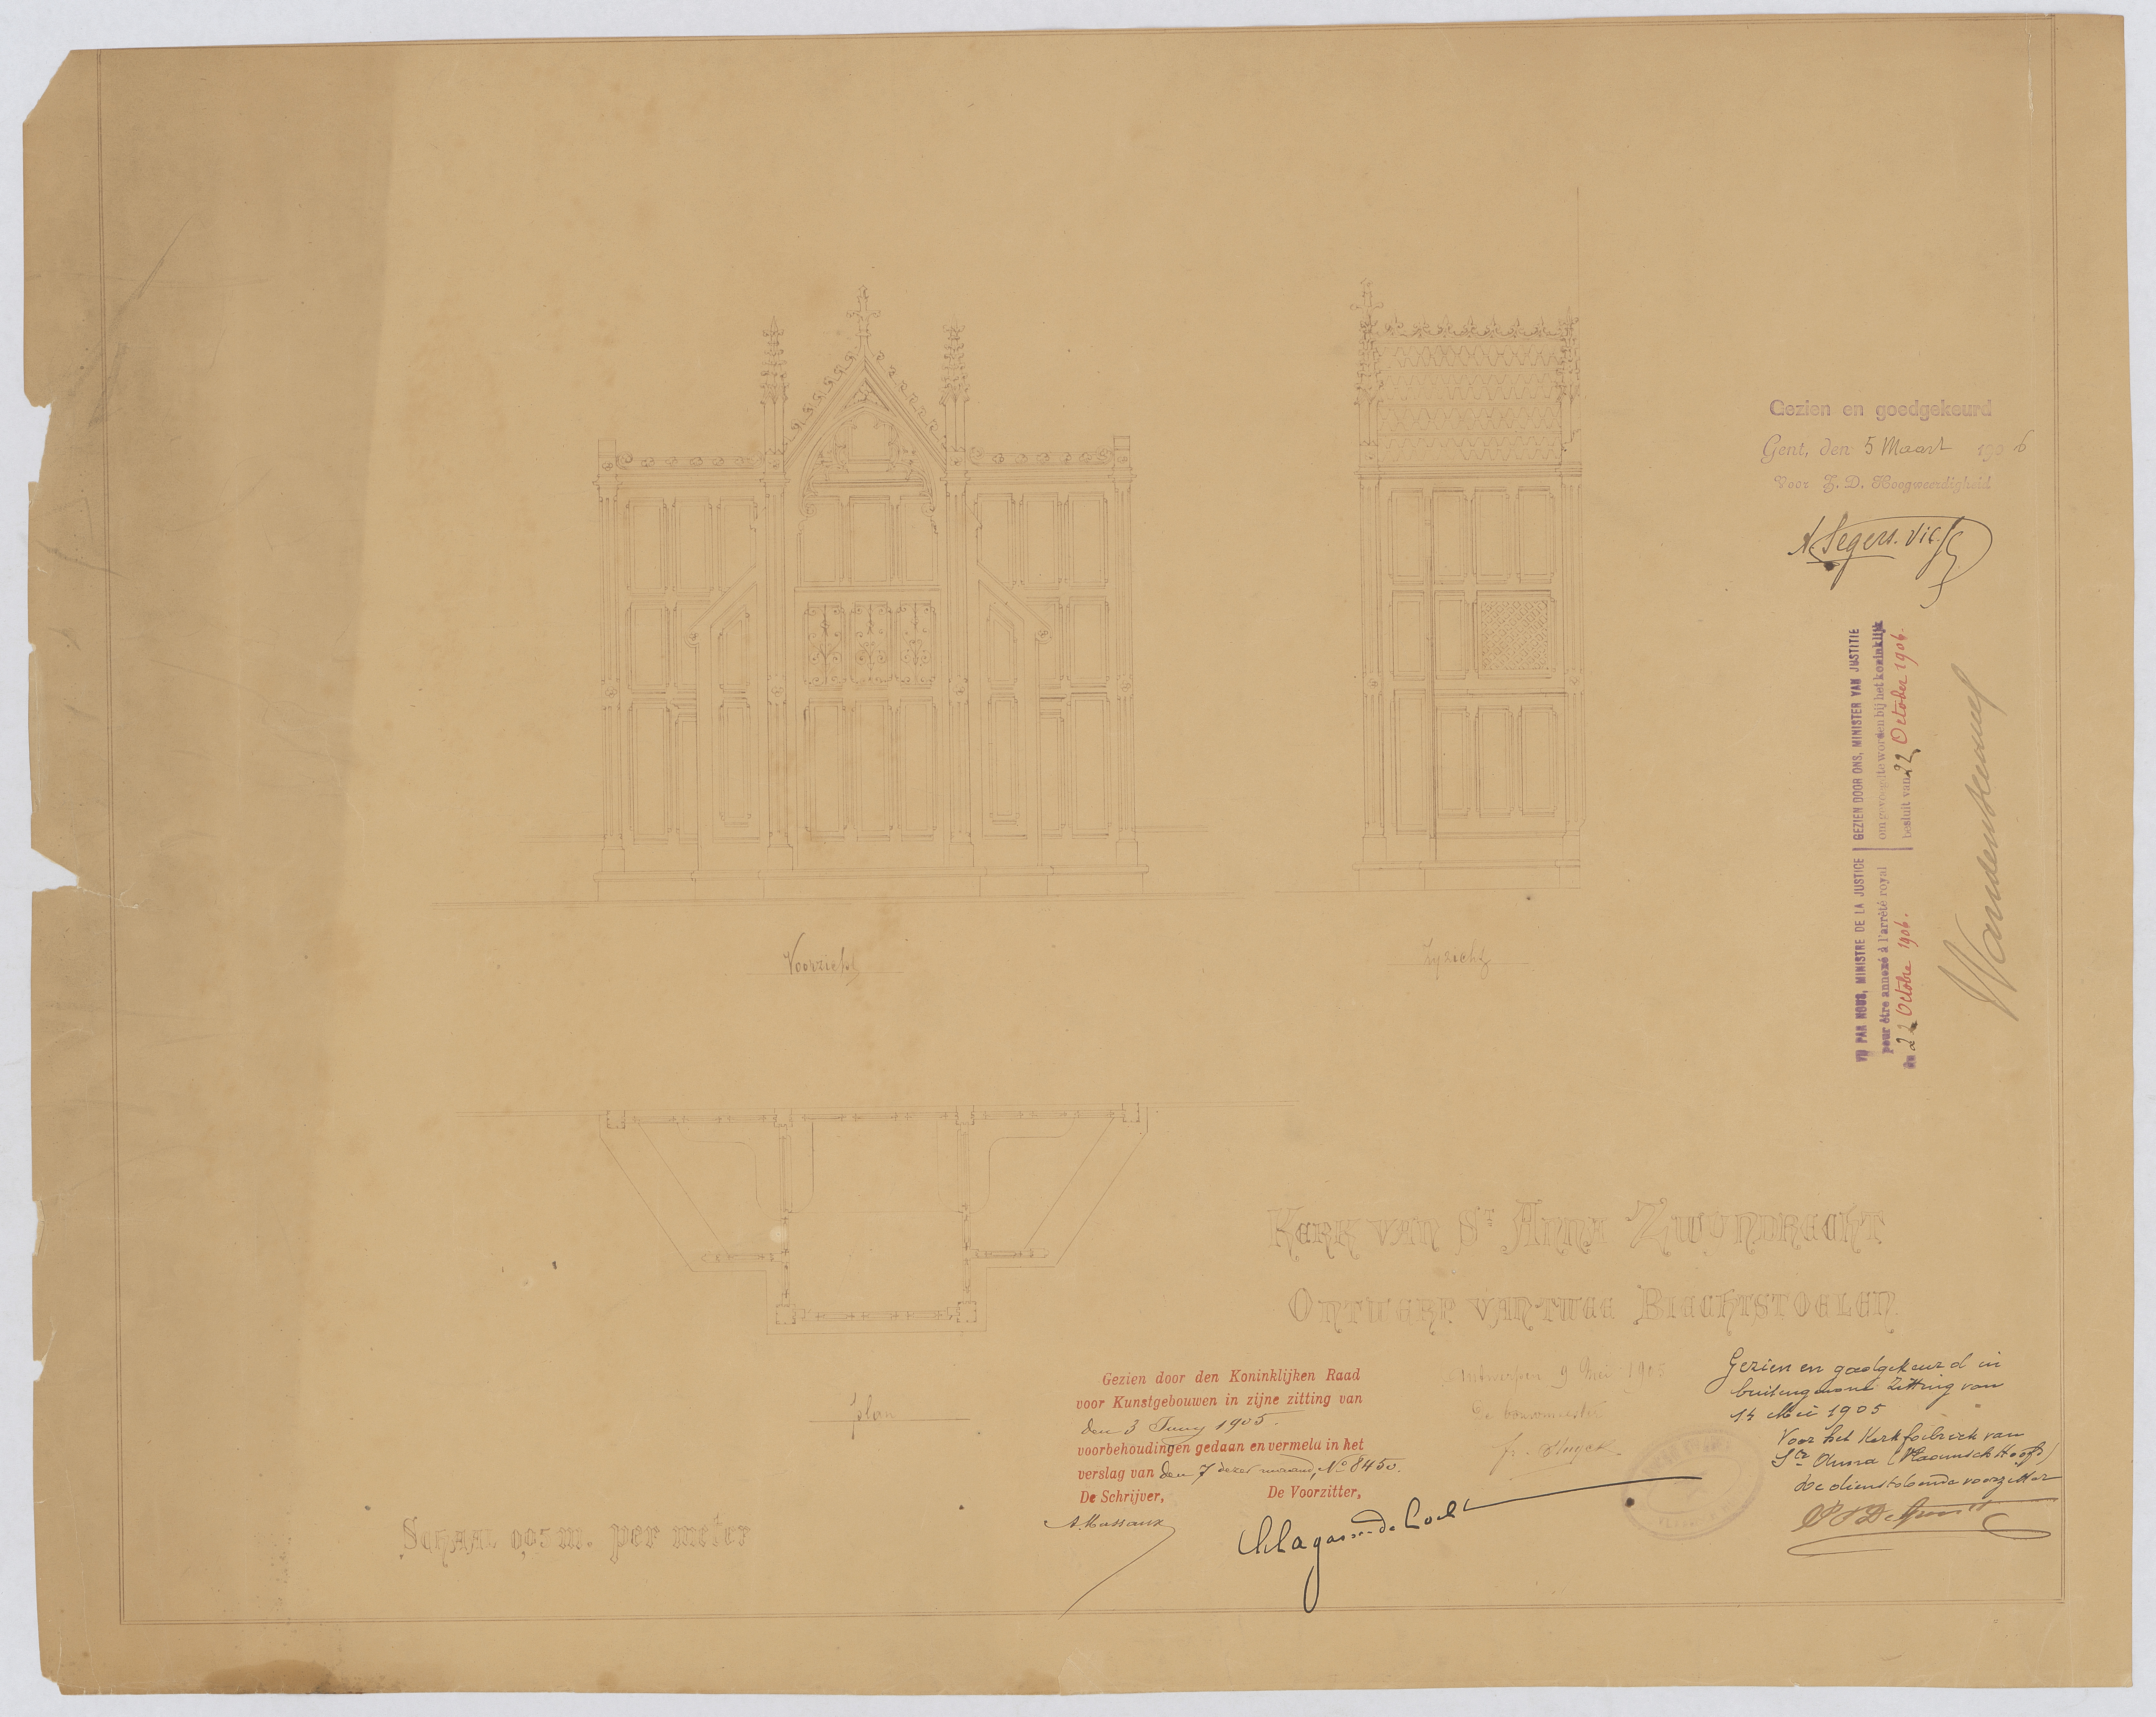 Gezien en goedgekeurd
Gent, den 5 Maart 1906
Voor Z. D. Hoogweerdigheid
A. Segers. Vic. G.
VU PAR NOUS, MINISTRE DE LA JUSTICE
pour être annexé à l'arrêté royal
du 22 Octobre 1906.
GEZIEN DOOR ONS, MINISTER VAN JUSTITIE
om gevoegd te worden bij het koninklijk
besluit van 22 October 1906.
Voorzicht
Zyzicht
plan
KERK VAN ST ANNA ZWYNDRECHT
ONTWERP VAN TWEE BIECHTSTOELEN
Antwerpen 9 Mei 1905
De bouwmeester
SCHAAL 0,05 m. per meter
Gezien door den Koninklijken Raad
voor Kunstgebouwen in zijne zitting van
den 3 Juny 1905.
voorbehoudingen gedaan en vermeld in het
verslag van den 7 dezer maand, No 8450.
De Schrijver, De Voorzitter,
A. Massaux
Ch Lagasse de Locht
Gezien en goedgekeurd in
buitengewone zitting van
14 Mei 1905
Voor het Kerkfabriek van
Ste Anna (Vlaamsch Hoofd)
de dienstdoende voorzitter